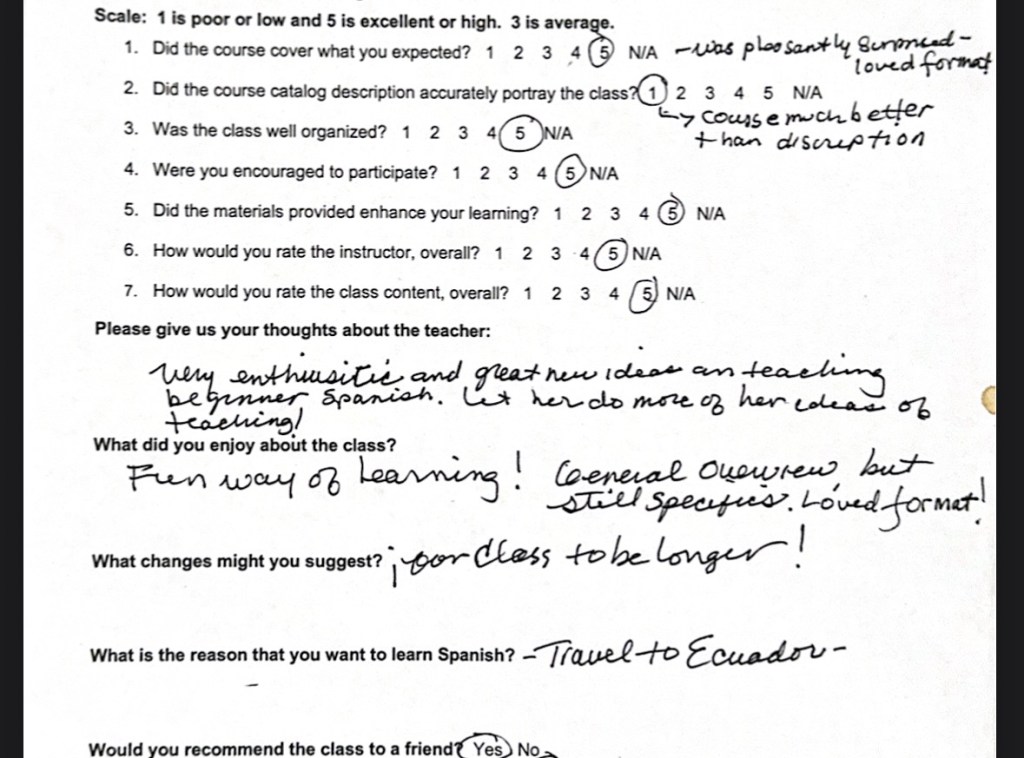 Scale: 1 is poor or low and 5 is excellent or high. 3 is average.
1. Did the course cover what you expected? 1 2 3 4 5 N/A - was pleasantly surprised -
loved format
2. Did the course catalog description accurately portray the class? 1 2 3 4 5 N/A
course much better
than discreption
3. Was the class well organized? 1 2 3 4 5 N/A
4. Were you encouraged to participate? 1 2 3 4 5 N/A
5. Did the materials provided enhance your learning? 1 2 3 4 5 N/A
6. How would you rate the instructor, overall? 1 2 3 4 5 N/A
7. How would you rate the class content, overall? 1 2 3 4 5 N/A
Please give us your thoughts about the teacher:
Very enthusiitic and great new ideas on teaching
beginner Spanish. Let her do more of her ideas of
teaching!
What did you enjoy about the class?
Fun way of learning! General Overview, but
still specifics. Loved format!
What changes might you suggest? ¡por Class to be longer!
What is the reason that you want to learn Spanish? - Travel to Ecuador -
Would you recommend the class to a friend? Yes No